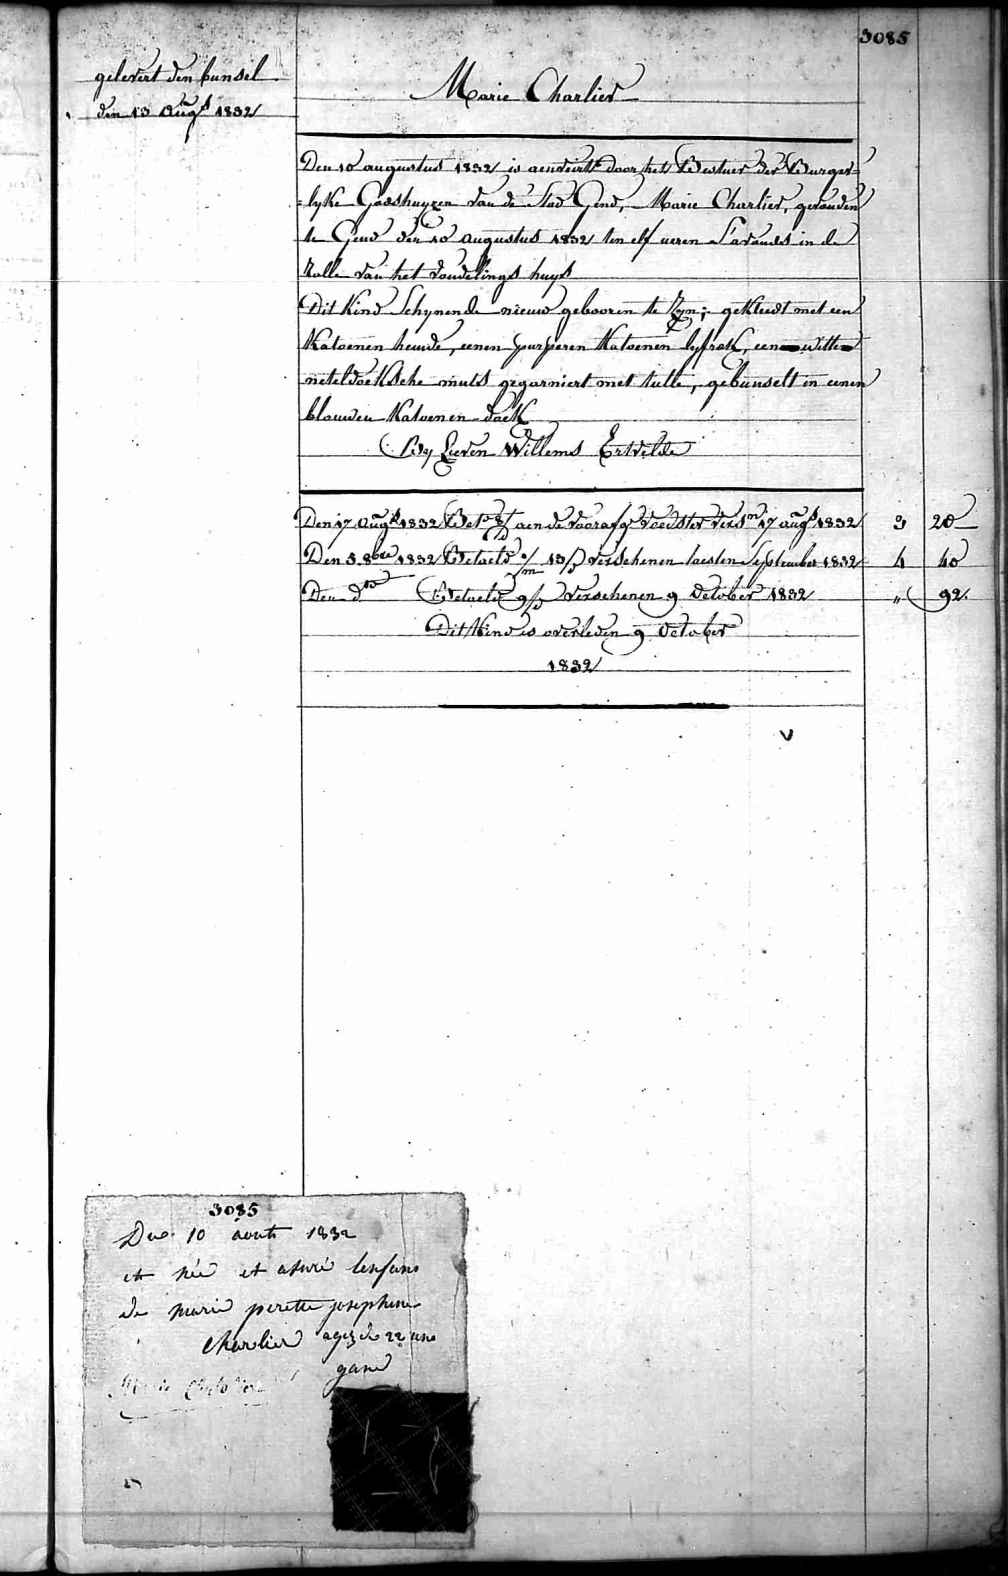 3085
gelevert den bunsel
den 13 Augs 1832
Marie Charlier
Den 10 augustus 1832 is aenveirt door het Bestuer der Burger=
=lyke Godshuyzen van de Stad Gend, Marie Charlier, gevonden
te Gend den 10 augustus 1832 ten elf ueren s'avonds in de
Rolle van het vondelings huys
Dit Kind Schynende nieuw gebooren te Zyn; gekleedt met een
Katoenen hemde, eenen purperen Katoenen lyfrok, een witte
neteldoeksche muts gegarniert met tulle, gebunselt in eenen
blauwen Katoenen doek
By Lieven Willems Ertvelde
Den 17 Augs 1832 Bet. aen de voorafge voedster vers.n 17 augs 1832 3 20
Den 5 8bre 1832 Betaeld verschenen laesten September 1832 4 40
Den do Betaeld verschenen 9 October 1832 " 92.
Dit Kind is overleden 9 October
1832
3085
Due 10 aout 1832
et née et asuré lenfans
de marie perette josephine
charlier agez de 22 ans
gand
Marie